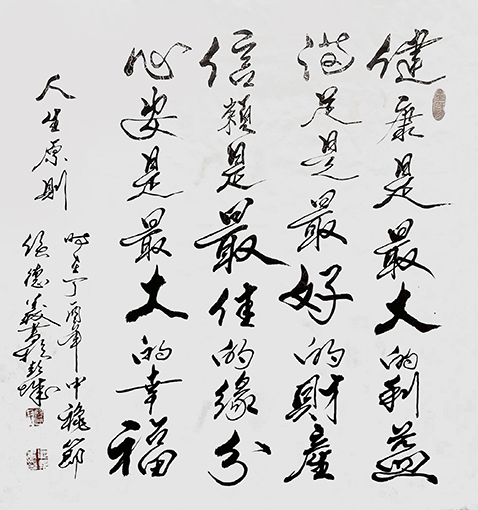 健康是最大的利益
滿足是最好的財產
信賴是最佳的緣分
心安是最大的幸福
人生原則
時在丁酉年中穐節
德義書於彭城